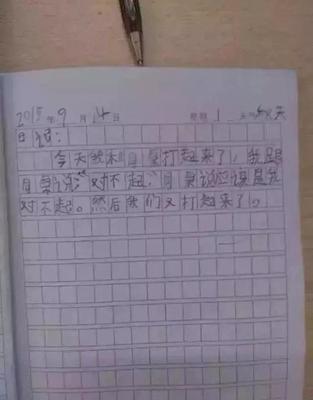 2015年9月14日 星期1 天气
日记:
今天我和同桌打起来了,我跟
同桌说:“对不起”,同桌说应该是我
对不起。然后我们又打起来了。